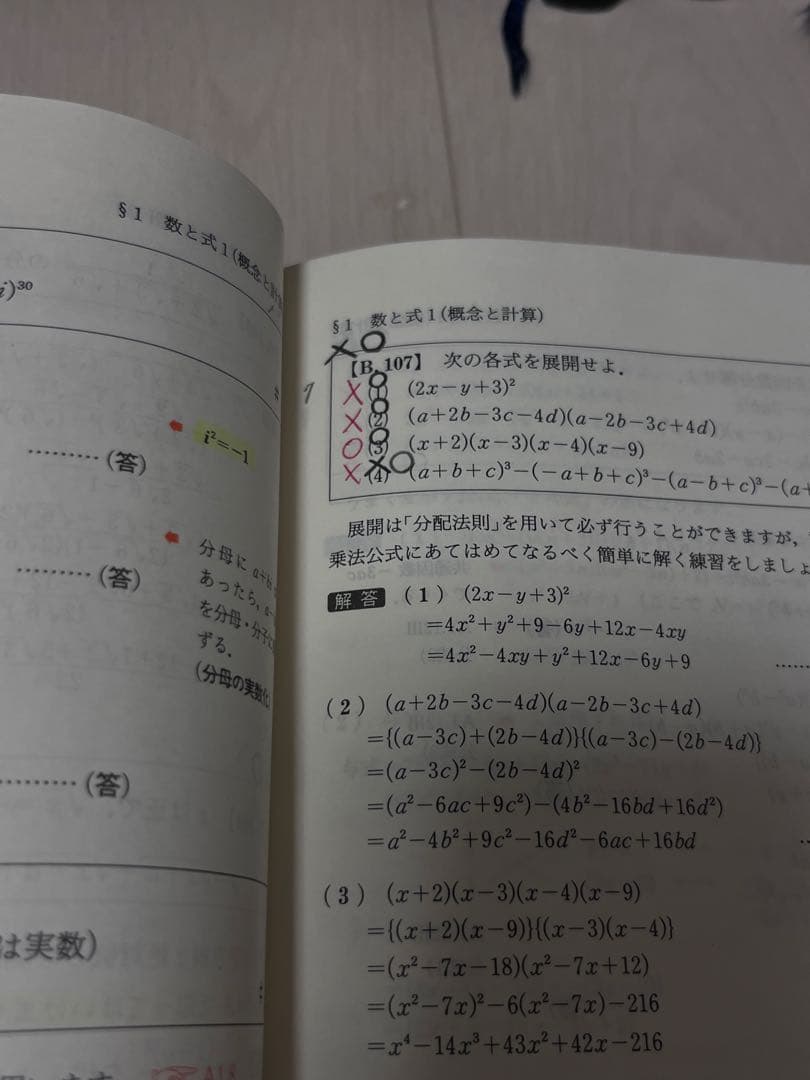 §1 数と式1(概念と計算
i)³⁰
i²=−1
………(答)
分母に a+b
あったら, a−
を分母・分子に
ずる.
(分母の実数化
………(答)
………(答)
は実数)
§1 数と式1(概念と計算)
× ○
【B. 107】 次の各式を展開せよ.
× (1) (2x−y+3)²
× (2) (a+2b−3c−4d)(a−2b−3c+4d)
○ (3) (x+2)(x−3)(x−4)(x−9)
× (4) (a+b+c)³−(−a+b+c)³−(a−b+c)³−(a+
展開は「分配法則」を用いて必ず行うことができますが,
乗法公式にあてはめてなるべく簡単に解く練習をしましょ
解答 (1) (2x−y+3)²
=4x²+y²+9−6y+12x−4xy
=4x²−4xy+y²+12x−6y+9 ……
(2) (a+2b−3c−4d)(a−2b−3c+4d)
={(a−3c)+(2b−4d)}{(a−3c)−(2b−4d)}
=(a−3c)²−(2b−4d)²
=(a²−6ac+9c²)−(4b²−16bd+16d²)
=a²−4b²+9c²−16d²−6ac+16bd
(3) (x+2)(x−3)(x−4)(x−9)
={(x+2)(x−9)}{(x−3)(x−4)}
=(x²−7x−18)(x²−7x+12)
=(x²−7x)²−6(x²−7x)−216
=x⁴−14x³+43x²+42x−216